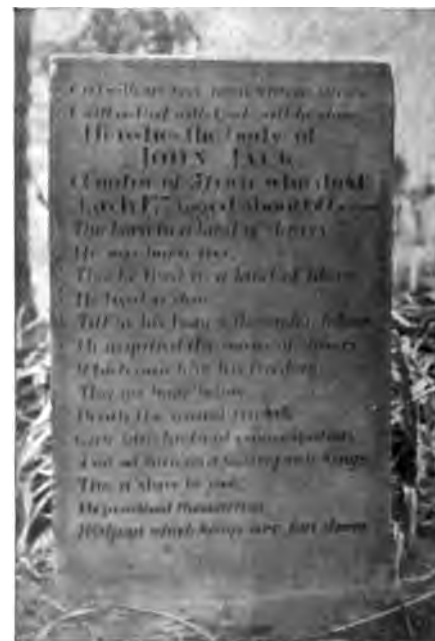 God wills us free man wills us slaves
I will as God wills Gods will be done
Here lies the body of
JOHN JACK
A native of Africa who died
March 1773 aged about 60 years
Tho born in a land of slavery
He was born free
Tho he lived in a land of liberty
He lived a slave
Till by his honest tho stolen labors
He acquired the source of slavery
Which gave him his freedom
Tho not long before
Death the grand tyrant
Gave him his final emancipation
And set him on a footing with kings
Tho a slave to vice
He practised those virtues
Without which kings are but slaves